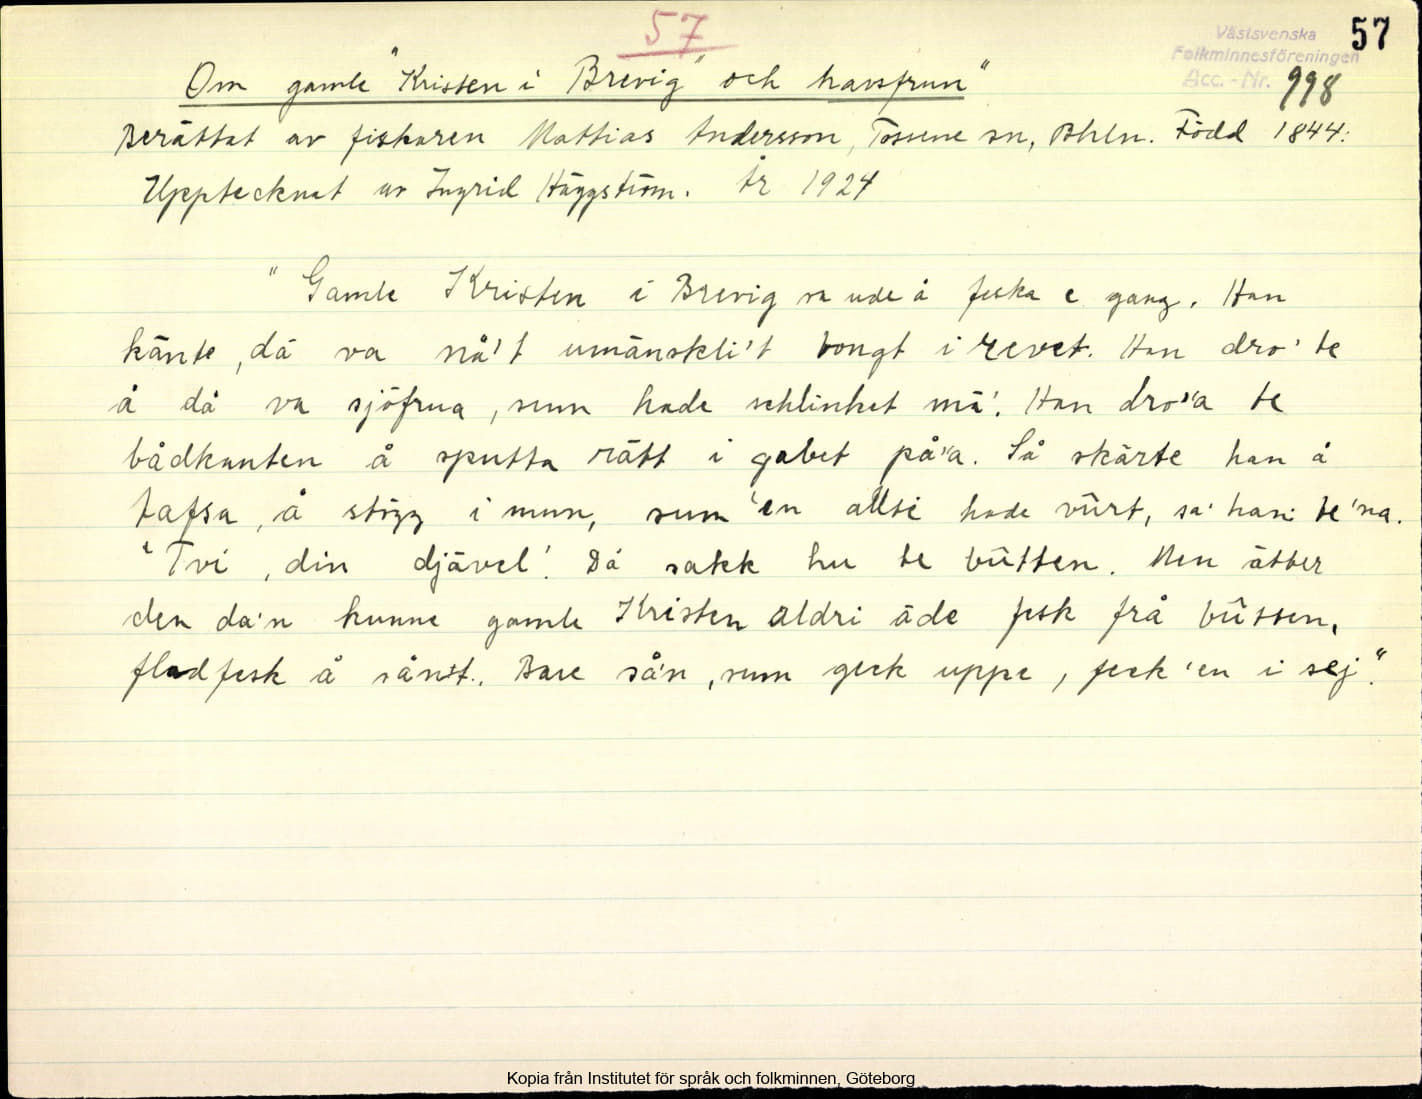 57
57
Västsvenska
Folkminnesföreningen
Acc. - Nr. 998
Om gamle "Kristen i Brevig" och havsfrun"
Berättat av fiskaren Mattias Andersson, Tossene sn, Bhln. Född 1844.
Upptecknat av Ingrid Häggström. År 1924
"Gamle Kristen i Brevig va ude å feska e gang. Han
känte, då va nå't umänskli't tongt i revet. Han dro' te
å då va sjöfrua, sum hade schlinket mä'. Han dro'a te
bådkanten å sputta rätt i gabet på'a. Så skärte han å
tafsa, å stögg i mun, sum 'en allti hade vûrt, sa' han te'na.
"Tvi, din djävel! Då sakk hu te bûtten. Men ätter
den da'n kunne gamle Kristen aldri äde fesk frå bûtten,
fladfesk å sån't. Bare så'n, sum geck uppe, feck 'en i sej".
Kopia från Institutet för språk och folkminnen, Göteborg